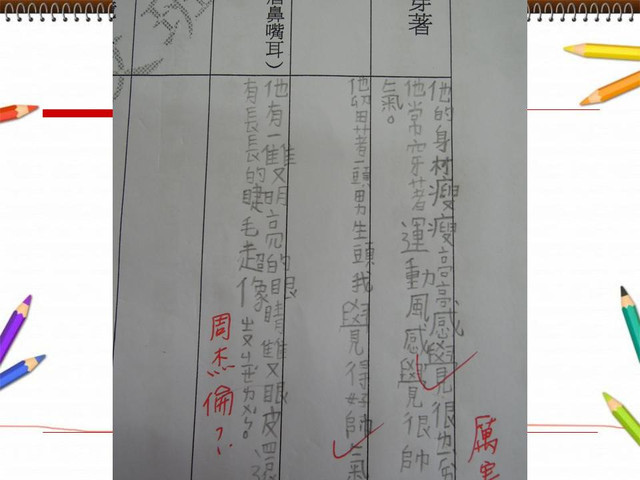 穿著
他的身材瘦瘦高高感覺很
他常穿著運動風感覺很帥
氣。
他留著一頭男生頭我覺得好帥氣
眉鼻嘴耳）
他有一雙明亮的眼睛雙眼皮還
有長長的睫毛超像
周杰倫？
厲害